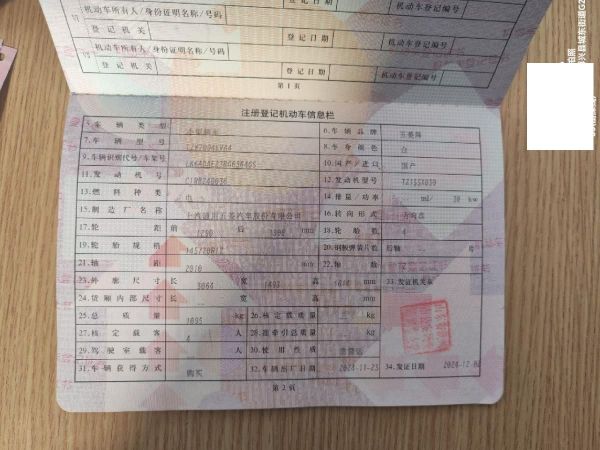 机动车所有人/身份证明名称/号码
登记机关 登记日期 机动车登记编号
机动车所有人/身份证明名称/号码
登记机关 登记日期 机动车登记编号
第1页
注册登记机动车信息栏
5.车辆类型 6.车辆品牌 五菱牌
7.车辆型号 8.车身颜色 白
9.车辆识别代号/车架号 10.国产/进口 国产
11.发动机号 12.发动机型号 TZ155X039
13.燃料种类 电 14.排量/功率 -- ml/ 30 kw
15.制造厂名称 上汽通用五菱汽车股份有限公司 16.转向形式 方向盘
17.轮距 前 1290 后 1306 mm 18.轮胎数 4
19.轮胎规格 145/70R12 20.钢板弹簧片数 后轴 -- 片
21.轴距 2010 mm 22.轴数 2
23.外廓尺寸 长 3064 宽 1493 高 mm 33.发证机关章
24.货厢内部尺寸 长 宽 高 mm
25.总质量 1095 kg 26.核定载质量 -- kg
27.核定载客 4 人 28.准牵引总质量 -- kg
29.驾驶室载客 人 30.使用性质 非营运
31.车辆获得方式 购买 32.车辆出厂日期 2024-11-23 34.发证日期 2024-12-02
第2页